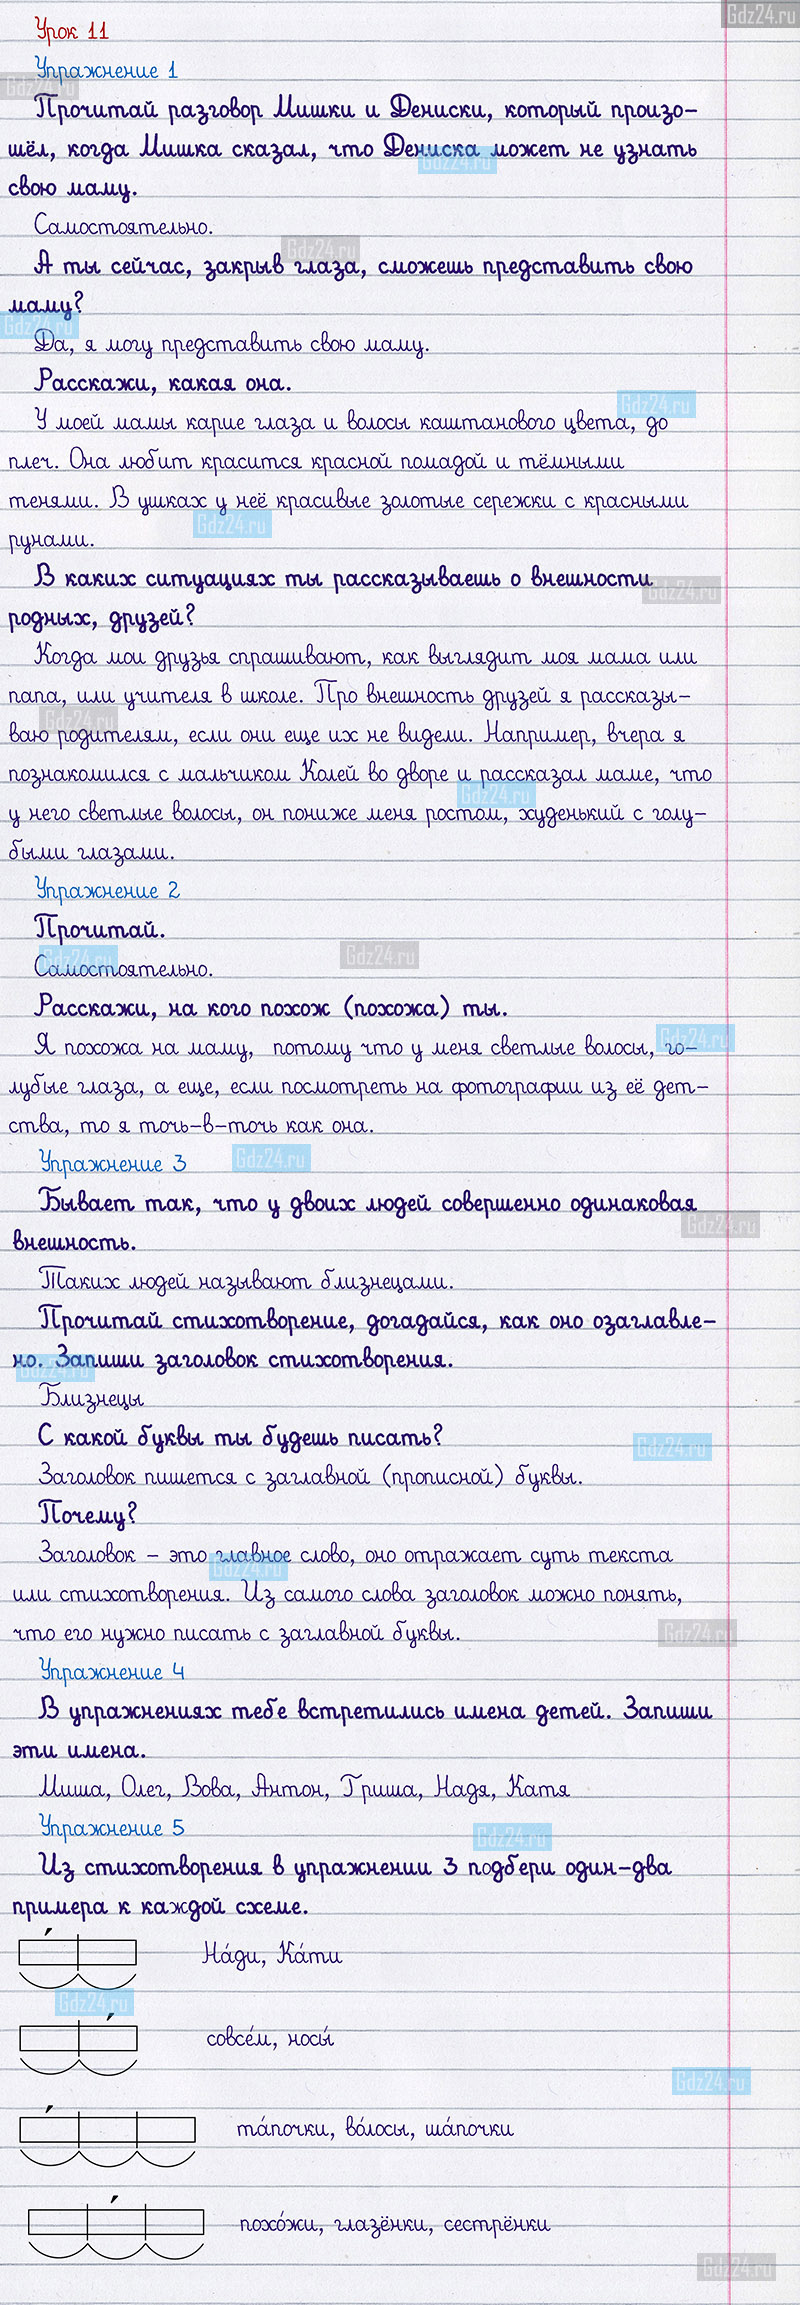 Gdz24.ru
Урок 11
Упражнение 1
Gdz24.ru
Прочитай разговор Мишки и Дениски, который произо-
шёл, когда Мишка сказал, что Дениска может не узнать
Gdz24.ru
свою маму.
Самостоятельно.
Gdz24.ru
А ты сейчас, закрыв глаза, сможешь представить свою
маму?
Gdz24.ru
Да, я могу представить свою маму.
Расскажи, какая она.
Gdz24.ru
У моей мамы карие глаза и волосы каштанового цвета, до
плеч. Она любит красится красной помадой и тёмными
тенями. В ушках у неё красивые золотые сережки с красными
Gdz24.ru
рунами.
В каких ситуациях ты рассказываешь о внешности
Gdz24.ru
родных, друзей?
Когда мои друзья спрашивают, как выглядит моя мама или
папа, или учителя в школе. Про внешность друзей я рассказы-
Gdz24.ru
ваю родителям, если они еще их не видели. Например, вчера я
познакомился с мальчиком Колей во дворе и рассказал маме, что
Gdz24.ru
у него светлые волосы, он пониже меня ростом, худенький с голу-
быми глазами.
Упражнение 2
Прочитай.
Gdz24.ru
Gdz24.ru
Самостоятельно.
Расскажи, на кого похож (похожа) ты.
Gdz24.ru
Я похожа на маму, потому что у меня светлые волосы, го-
лубые глаза, а еще, если посмотреть на фотографии из её дет-
ства, то я точь-в-точь как она.
Упражнение 3
Gdz24.ru
Бывает так, что у двоих людей совершенно одинаковая
Gdz24.ru
внешность.
Таких людей называют близнецами.
Прочитай стихотворение, догадайся, как оно озаглавле-
но. Запиши заголовок стихотворения.
Gdz24.ru
Близнецы
С какой буквы ты будешь писать?
Gdz24.ru
Заголовок пишется с заглавной (прописной) буквы.
Почему?
Заголовок – это главное слово, оно отражает суть текста
Gdz24.ru
или стихотворения. Из самого слова заголовок можно понять,
что его нужно писать с заглавной буквы.
Gdz24.ru
Упражнение 4
В упражнениях тебе встретились имена детей. Запиши
эти имена.
Миша, Олег, Вова, Антон, Гриша, Надя, Катя
Упражнение 5
Gdz24.ru
Из стихотворения в упражнении 3 подбери один-два
примера к каждой схеме.
На́ди, Ка́ти
Gdz24.ru
совсе́м, носы́
Gdz24.ru
та́почки, во́лосы, ша́почки
похо́жи, глазёнки, сестрёнки
Gdz24.ru